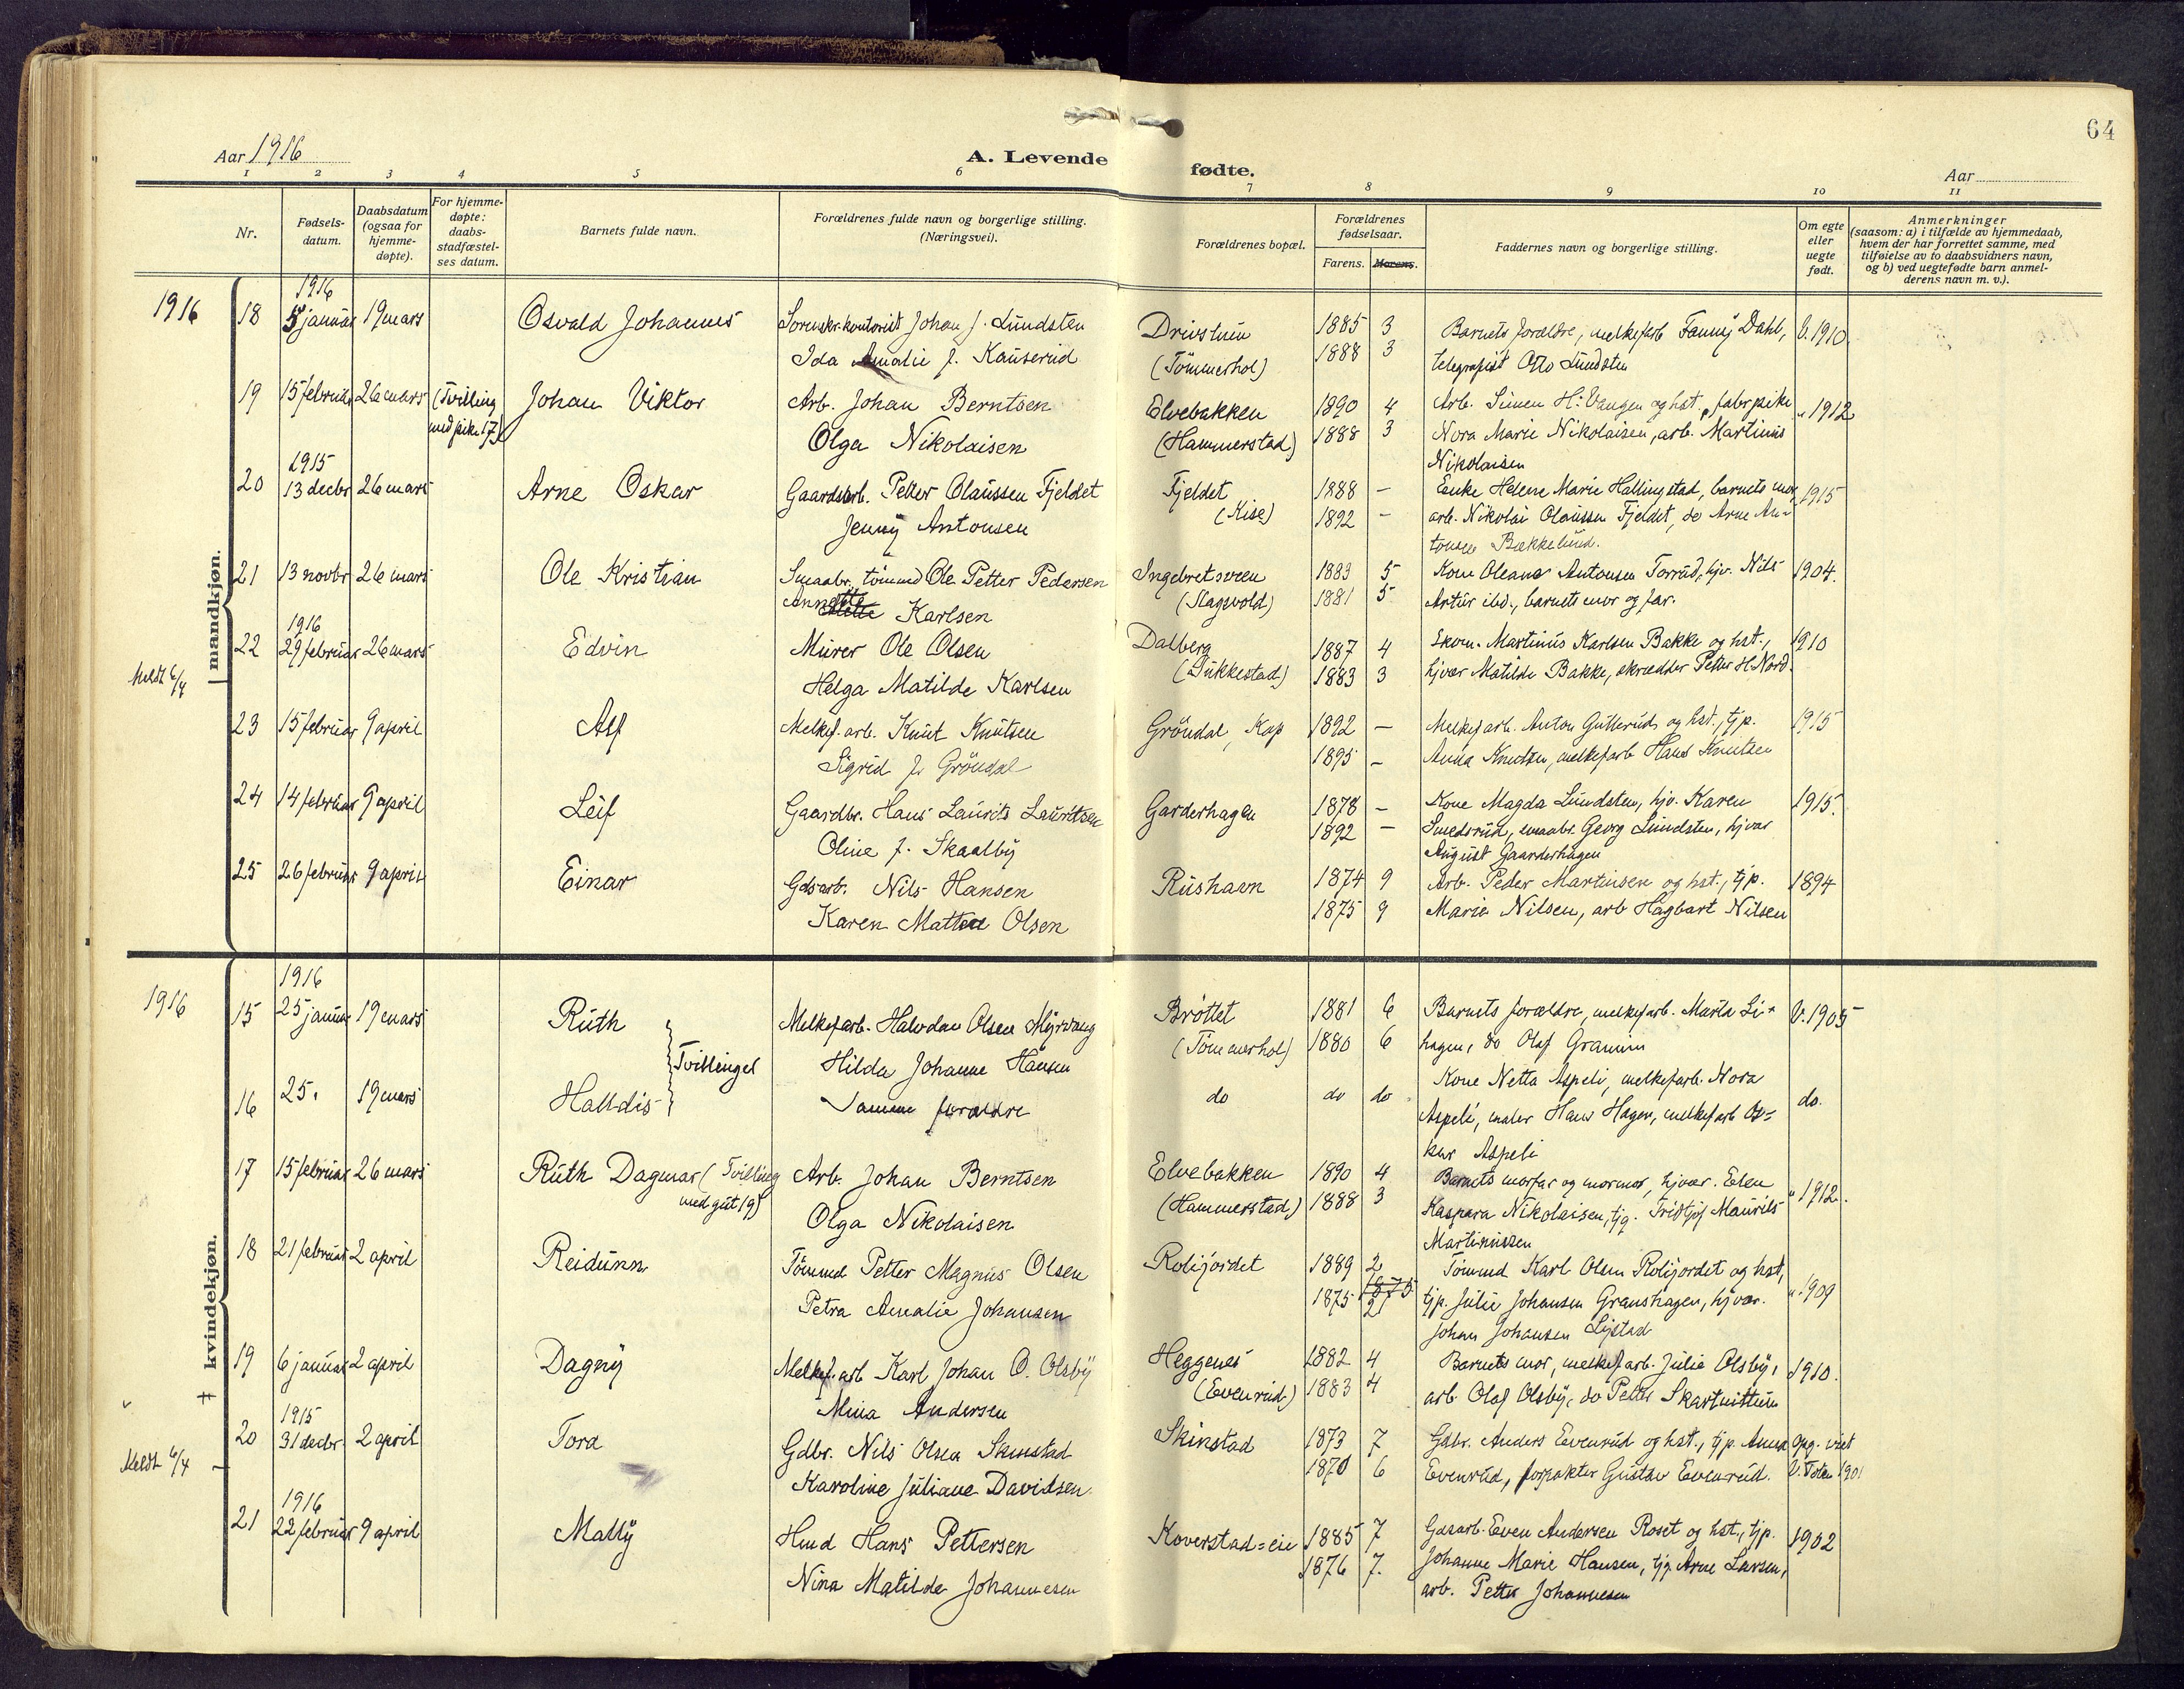 64
Aar 1916
A. Levende fødte.
Aar
1 2 3 4 5 6 7 8 9 10 11
Nr.
Fødsels-
datum.
Daabsdatum
(ogsaa for
hjemme-
døpte).
For hjemme-
døpte:
daabs-
stadfæstel-
ses datum.
Barnets fulde navn.
Forældrenes fulde navn og borgerlige stilling.
(Næringsvei).
Forældrenes bopæl.
Forældrenes
fødselsaar.
Farens. Morens.
Faddernes navn og borgerlige stilling.
Om egte
eller
uegte
født.
Anmerkninger
(saasom: a) i tilfælde av hjemmedaab,
hvem der har forrettet samme, med
tilføielse av to daabsvidners navn,
og b) ved uegtefødte barn anmel-
derens navn m. v.).
mandkjøn.
1916
1916
18 5 januar 19 mars Osvald Johannes Sorenskr.kontorist Johan J. Lundsten 1885 3 Barnets forældre, melkefarb Fanny Dahl, b. 1910
Ida Amalie f. Kauserud (Tömmerhol) 1888 3 telegrafist Otto Lundsten
19 15 februar 26 mars (Tvilling Johan Viktor Arb. Johan Berntsen Elvebakken 1890 4 Arb. Simen H. Vangen og hst., fabrpike " 1912
med pike 17) Olga Nikolaisen (Hammerstad) 1888 3 Nora Marie Nikolaisen, arb. Martinus
Nikolaisen
1915
20 13 decbr 26 mars Arne Oskar Gaardsarb. Petter Olaussen Fjeldet Fjeldet 1888 – Enke Helene Marie Hallingstad, barnets mor, 1915
Jenny Antonsen (Kise) 1892 – arb. Nikolai Olaussen Fjeldet, do Arne An-
tonsen Bækkelund.
21 13 novbr 26 mars Ole Kristian Smaabr. tömmd Ole Petter Pedersen Ingebretsveen 1883 5 Kone Oleane Antonsen Torrud, hjv. Nils 1904.
Annette Karlsen (Slagsvold) 1881 5 Artur ibd., barnets mor og far.
1916
22 29 februar 26 mars Edvin Murer Ole Olsen Dalberg 1887 4 Ekom. Martinus Karlsen Bakke og hst., 1910
Meldt 6/4 Helga Matilde Karlsen (Sukkestad) 1883 3 hjvær Matilde Bakke, skrædder Petter H. Nord.
23 15 februar 9 april Alf Melkef. arb. Knut Knutsen Gröndal, Kap 1892 – Melkef arb. Anton Gutterud og hst., tjp. 1915
Sigrid f. Gröndal 1895 – Anna Knutsen, melkefarb Hans Knutsen
24 14 februar 9 april Leif Gaardbr. Hans Laurits Lauritsen Garderhagen 1878 – Kone Magda Lundsten, hjv. Karen 1915.
Oline f. Skaalby 1892 – Smedsrud, smaabr. Georg Lundsten, hjvær
August Gaarderhagen
25 26 februar 9 april Einar Gdsarb. Nils Hansen Rushavn 1874 9 Arb. Peder Martinsen og hst., tjp. 1894
Karen Mattea Olsen 1875 9 Marie Nilsen, arb Hagbart Nilsen
kvindekjøn.
1916
1916
15 25 januar 19 mars Ruth Melkefarb. Halvdan Olsen Myrvang Bröttet 1881 6 Barnets forældre, melkefarb. Marta Li- V. 1905
Tvillinger Hilda Johanne Hansen (Tömmerhol) 1880 6 hagen, do Olaf Granum
16 25. 19 mars Halldis Samme forældre do do do Kone Netta Aspeli, melkefarb. Nora do.
Aspeli, maler Hans Hagen, melkefarb Os-
kar Aspeli
17 15 februar 26 mars Ruth Dagmar (Tvilling Arb. Johan Berntsen Elvebakken 1890 4 Barnets morfar og mormor, hjvær. Elen " 1912.
med gut 19) Olga Nikolaisen (Hammerstad) 1888 3 Kaspara Nikolaisen, tjg. Fridtjof Maurits
Martinussen
18 21 februar 2 april Reidunn Tömmd Petter Magnus Olsen Rolijordet 1889 2 Tömmd Karl Olsen Rolijordet og hst, " 1909
Petra Amalie Johansen 1875 1875 2 tjp. Julie Johansen Granshagen, hjvær.
Johan Johansen Lystad
19 6 januar 2 april Dagny Melkef. arb Karl Johan O. Olsby Heggenes 1882 4 Barnets mor, melkefarb. Julie Olsby, 1910.
Mina Andersen (Evenrud) 1883 4 arb Olaf Olsby, do Petter Skartnittum
1915
20 31 decbr. 2 april Tora Gdbr. Nils Olsen Skinstad Skinstad 1873 7 Gdbr. Anders Evenrud og hst., tjp. Anna Opg. viet
Meldt 6/4 Karoline Juliane Davidsen 1870 6 Evenrud, forpakter Gustav Evenrud. V. Toten 1901
1916
21 22 februar 9 april Mally Hmd Hans Pettersen Koverstad=eie 1885 7 Gdsarb. Even Andersen Roset og hst., tjp. 1902
Nina Matilde Johannesen 1876 7. Johanne Marie Hansen, tjg Arne Larsen,
arb. Petter Johannesen